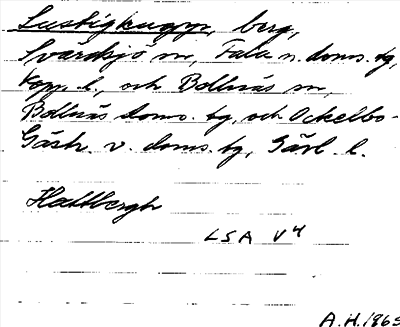 Lustigknopp, berg,
Svärdsjö sn, Falu n. doms. tg,
Kopp. l., och Bollnäs sn,
Bollnäs doms. tg, och Ockelbo-
Gästr. v. doms. tg, Gävl. l.
Hallbergh
LSA V4
A.H. 1865